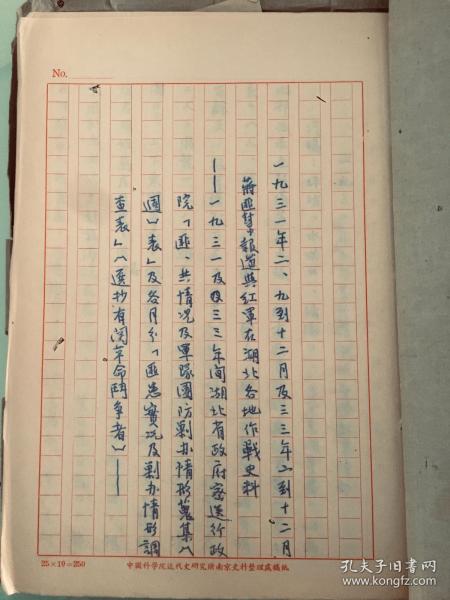 No.
一九三一年二、九到十二月及三三年二到十二月
蔣匪幫報道與紅軍在湖北各地作戰史料
——一九三一及三三年间湖北省政府密送行政
院「匪、共情况及軍隊團防剿办情形蒐集
週(表)及各月份「匪患實况及剿办情形調
查表」(選抄有関革命鬥争者)——
25×10=250
中國科学院近代史研究所南京史料整理處稿紙
孔夫子旧书网
www.kongfz.com